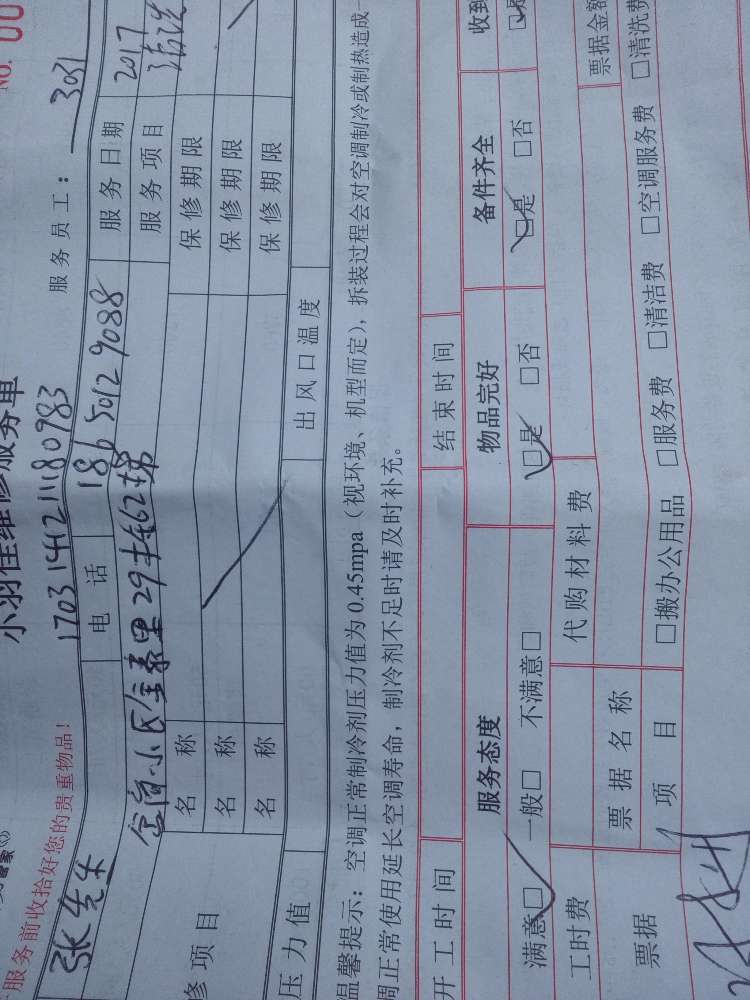 NO. 00
小羽佳维修服务单
服务前收拾好您的贵重物品!
170314121180983
服务员工: 3031
张先生
电 话
186 5012 9088
服务日期
2017
服务项目
清洗
修项目
名 称
保修期限
名 称
保修期限
名 称
保修期限
压力值
出风口温度
温馨提示: 空调正常制冷剂压力值为0.45mpa (视环境、机型而定), 拆装过程会对空调制冷或制热造成
调正常使用延长空调寿命, 制冷剂不足时请及时补充。
开工时间
结束时间
服务态度
物品完好
备件齐全
收到
满意□ 一般□ 不满意□
□是 □否
□是 □否
工时费
代购材料费
票据
票据名称
票据金额
项 目
□搬办公用品 □服务费 □清洁费 □空调服务费 □清洗费